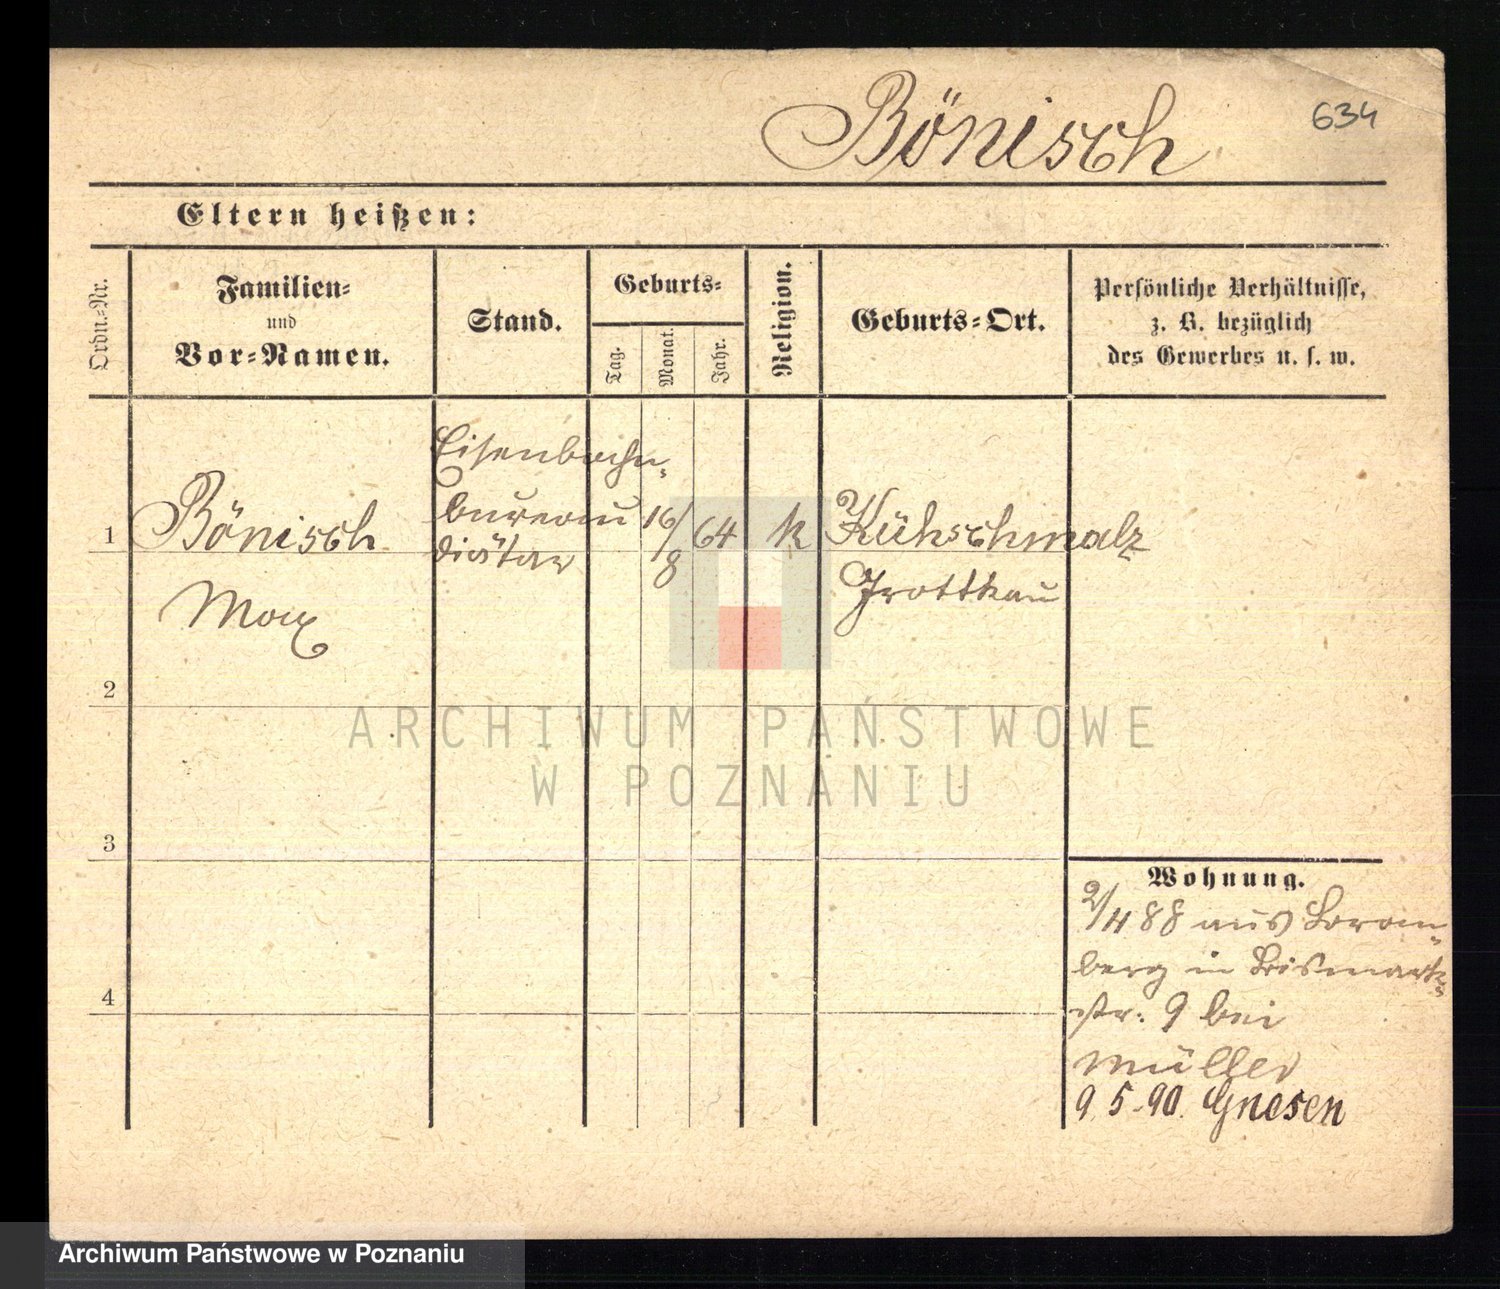 Bönisch
634
Eltern heißen:
Ordn.-Nr.
Familien-
und
Vor-Namen.
Stand.
Geburts-
Tag.
Monat.
Jahr.
Religion.
Geburts-Ort.
Persönliche Verhältnisse,
z. B. bezüglich
des Gewerbes u. s. w.
1
Bönisch
Max
Eisenbahn-
bureau
diätar
16/8
64
k
Kühschmalz
Grottkau
2
3
4
Wohnung.
2/4 88 aus Brom-
berg in Bismark-
str. 9 bei
Müller
9.5.90. Gnesen
ARCHIWUM PAŃSTWOWE
W POZNANIU
Archiwum Państwowe w Poznaniu